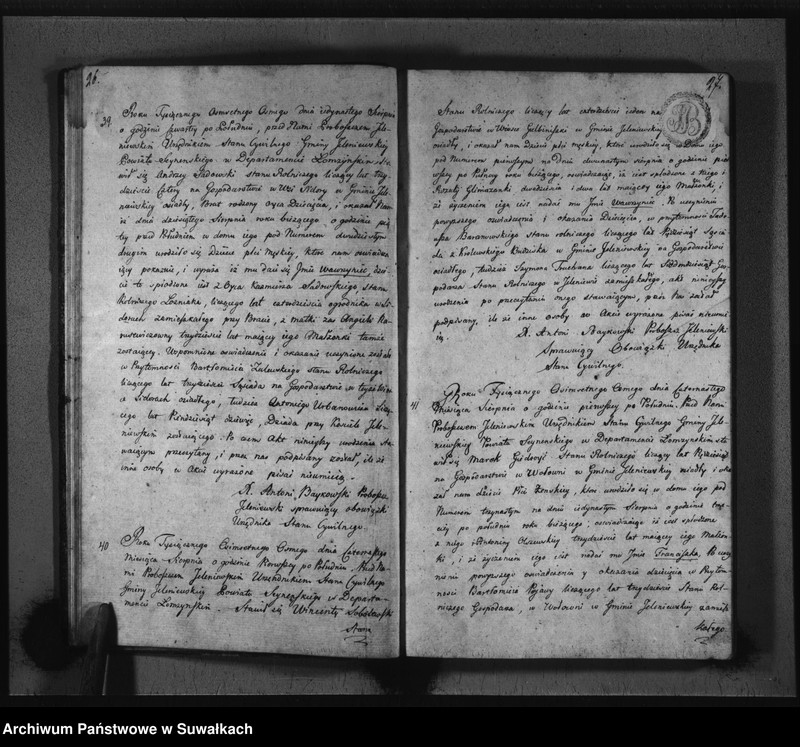 26.
39. Roku Tysiącznego Osmsetnego Osmego dnia iedynastego Sierpnia
o godzinie czwarty po Południu, przed Nami Proboszczem Jele-
niewskim Urzędnikiem Stanu Cywilnego Gminy Jeleniewskiey
Powiatu Seynenskiego w Departamencie Łomżynskim Sta-
wił się Andrzey Sadowski stanu Rolniczego liczący lat trzy-
dzieście cztery na Gospodarstwie w Wsi w Gminie Jele-
niewskiey osiadły, Brat rodzony Oyca Dziecięcia, i okazał Nam
iż dnia dziesiątego Sierpnia roku bieżącego o godzinie pią-
ty przed Południem w domu iego pod Numerem dwudziestym
drugim urodziło się Dziecie płci Męskiy, które nam oświadcza-
iący pokazuie, i wyraża iż mu daie się Jmie Wawrzyniec, dzie-
cie to spłodzone iest z Oyca Kazmierza Sadowskiego, stanu
Rolniczego liczącego lat czterdzieście ogrodnika w Si-
dorach zamieszkałego przy Bracie, z matki zaś Angieli
trzydzieści lat maiący iego Małżonki tamże
zostaiącey. Wspomnione oświadczenie i okazanie uczynione zostało
w Przytomności Bartłomieia Zalewskiego stanu Rolniczego
liczącego lat trzydzieści Sąsiada na Gospodarstwie w
Sidorach osiadłego, tudzież Antoniego Urbanowicza licz-
cego lat Dziada przy Kościele Jele-
niewskim zostaiącego. Po czem Akt ninieyszy urodzenia sta-
waiącym przeczytany, i przez nas podpisany został, ile że
inne osoby w Akcie wyrażone pisać nieumieią.
X. Antoni Baykowski Probosz
Jeleniewski sprawuiący obowiązki
Urzędnika Stanu Cywilnego.
40 Roku Tysiącznego Osimsetnego Osmego dnia
Miesiąca Sierpnia o godzinie Pierwszy po Południu. Przed Na-
mi Proboszczem Jeleniewskim Urzędnikiem Stanu Cywilnego
Gminy Jeleniewskiey Powiatu Seynenskiego w Departa-
mencie Łomzynskim. Stawił się Wincenty Sobolewski
Stanu
27.
Stanu Rolniczego liczący lat czterdzieście ieden na
Gospodarstwie w Wiosce w Gminie Jeleniewskiey
osiadły, i okazał nam Dziecie płci męskiey, które urodziło się w Domu iego
pod Numerem pierwszym na Dniu dwunastym sierpnia o godzinie pier-
wszy po Północy roku bieżącego, oświadczaiąc, iż iest spłodzone z Niego i
Rozalij dwadzieścia i dwa lat maiący iego Małżonki, i
iż życzeniem iego iest nadać mu Jmie Wawrzyniec. Po uczynieniu
powyższego oświadczenia i okazania Dziecięcia, w przytomności Tade-
usza Baranowskiego stanu rolniczego liczącego lat Sąsia-
da z w Gminie Jeleniewskiey na Gospodarstwie
osiadłego, tudzież Szymona liczącego lat Siedemdziesiąt Go-
spodarza Stanu Rolniczego w Jeleniewie zamieszkałego, akt ninieyszy
urodzenia po przeczytaniu onego stawaiącym, przez Nas został
podpisany, ile że inne osoby w Akcie wyrażone pisać nieumie-
ią.
X. Antoni Baykowski Probosz Jeleniewski
Sprawuiący Obowiązki Urzędnika
Stanu Cywilnego.
41 Roku Tysiącznego Osimsetnego Osmego dnia Czternastego
Miesiąca Sierpnia o godzinie pierwszey po Południu. Przed Nami
Proboszczem Jeleniewskim Urzędnikiem Stanu Cywilnego Gminy Jele-
niewskiey Powiatu Seynenskiego w Departamencie Łomzynskim sta-
wił się Marek Stanu Rolniczego liczący lat
na Gospodarstwie w Wołowni w Gminie Jeleniewskiey osiadły i oka-
zał nam dziecie Płci Żenskiey, które urodziło się w domu iego pod
Numerem trzynastym na dniu iedynastym Sierpnia o godzinie trze-
ciey po południu roku bieżącego; oświadczaiąc iż iest spłodzone
z niego i Antoniny Olszewskiey trzydzieście lat maiący iego Małżon-
ki, i iż życzeniem iego iest nadać mu Jmie Franciszka. Po uczy-
nieniu powyższego oświadczenia y okazania dziecięcia w Przytom-
ności Bartłomieia liczącego lat trzydzieście Stanu Rol-
niczego Gospodarza, w Wołowni w Gminie Jeleniewskiey zamiesz-
kałego
Archiwum Państwowe w Suwałkach